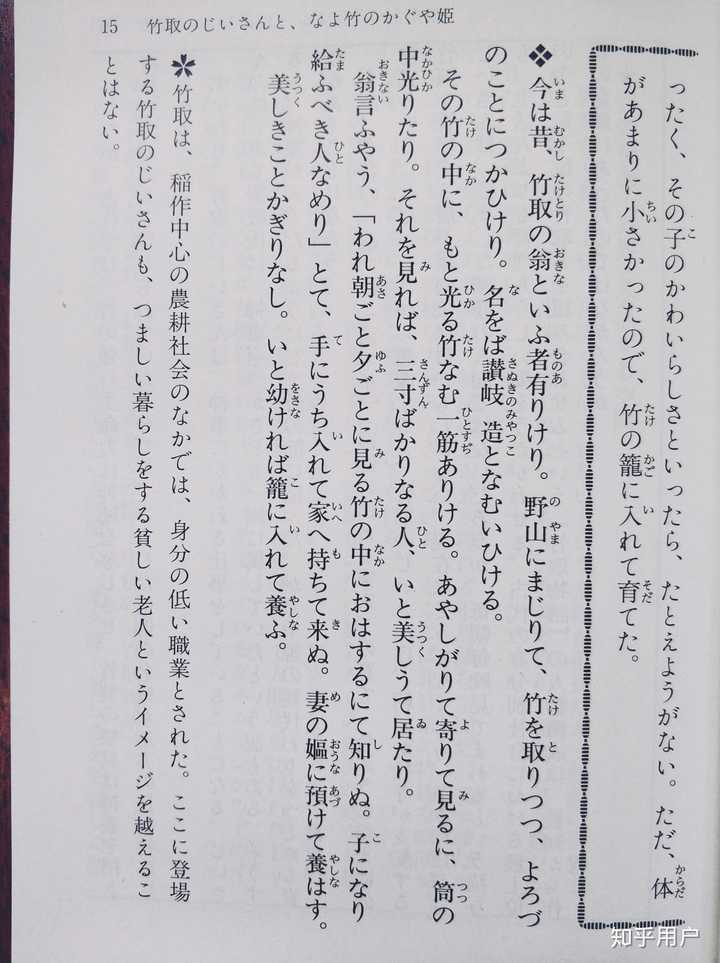 15 竹取のじいさんと、なよ竹のかぐや姫
ったく、その子のかわいらしさといったら、たとえようがない。ただ、体
があまりに小さかったので、竹の籠に入れて育てた。
❖今は昔、竹取の翁といふ者有りけり。野山にまじりて、竹を取りつつ、よろづ
のことにつかひけり。名をば讃岐造となむいひける。
その竹の中に、もと光る竹なむ一筋ありける。あやしがりて寄りて見るに、筒の
中光りたり。それを見れば、三寸ばかりなる人、いと美しうて居たり。
翁言ふやう、「われ朝ごと夕ごとに見る竹の中におはするにて知りぬ。子になり
給ふべき人なめり」とて、手にうち入れて家へ持ちて来ぬ。妻の嫗に預けて養はす。
美しきことかぎりなし。いと幼ければ籠に入れて養ふ。
✽竹取は、稲作中心の農耕社会のなかでは、身分の低い職業とされた。ここに登場
する竹取のじいさんも、つましい暮らしをする貧しい老人というイメージを越えるこ
とはない。
知乎用户